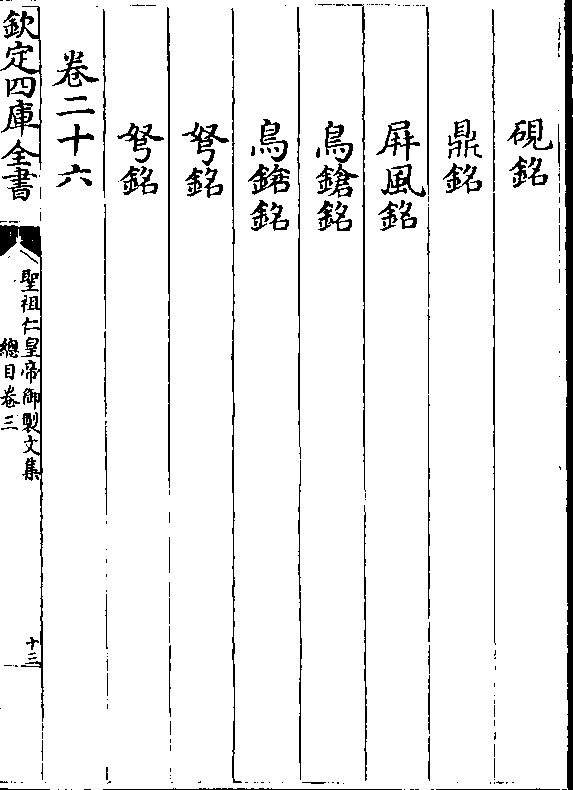 硯銘
鼎銘
屏風銘
鳥鎗銘
鳥鎗銘
弩銘
弩銘
卷二十六
欽定四庫全書
聖祖仁皇帝御製文集
總目卷三
十三